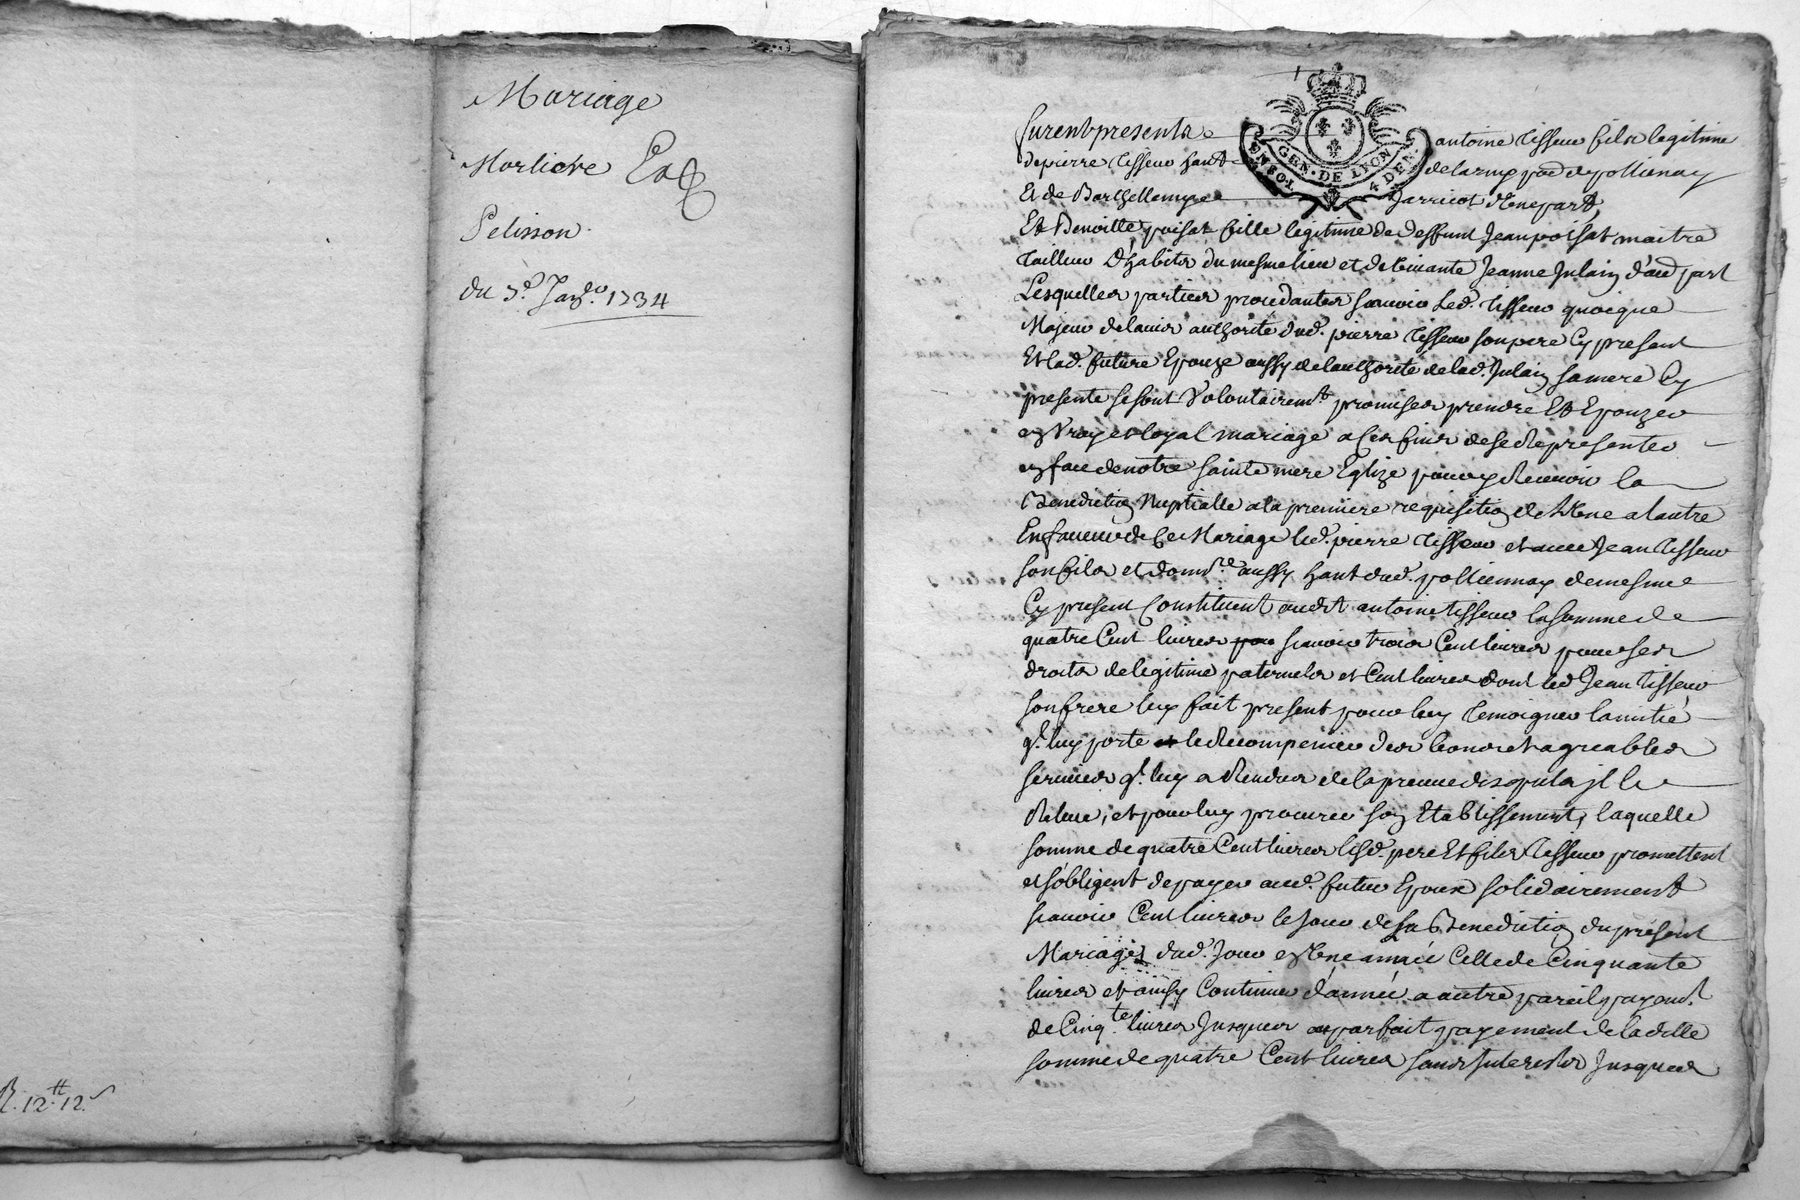 Mariage
Morliere Exp
Pelisson
du 7e. Janv. 1734
R. 12tt 12s
furent presents antoine tisseur fils legitime
de pierre tisseur hant de larny pad de pollionay
Et de Barthellemye Jarricot d'une part
Et Benoitte poisat fille legitime de deffunt Jean poisat maitre
tailleur d'habits du mesme lieu et de vivante Jeanne Julain d'aud part
Lesquelles parties procedantes scavoir Led. tisseur quoique
Majeur de lauis authorité dud. pierre tisseur son pere Cy present
Et lad. future Epouze aussy de lauthorité de lad. Julain sa mere Cy
presente se sont Volontairemt promises prendre Et Epouzer
en Vray et loyal mariage a Ces fins de se Representer
en face de notre sainte mere Eglize pour y Recevoir la
Benediction Nuptialle a la premiere requisition de lUne a lautre
En faveur de Ce Mariage led. pierre tisseur et avec Jean tisseur
son fils et aussy hant dud. pollionnay de mesme
Cy present Constituent audit antoine tisseur la somme de
quatre Cent livres scavoir trois Cent livres pour ses
droits de legitime paternels et Cent livres dont led Jean tisseur
son frere luy fait present pour luy temoigner lamitié
ql. luy porte le Recompencer des bons et agreables
services ql. luy a Rendus de la preuve desquels jl le
Releve, et pour luy procurer son Etablissement, laquelle
somme de quatre Cent livres lesd. pere Et fils tisseur promettent
et s'obligent de payer aud. futur Epoux solidairement
scavoir Cent livres le jour de la Benediction du present
Mariage, dud. Jour en Une année Celle de Cinquante
livres et ainsy Continuer d'année a autre pareil payemt.
de Cinqte. livres Jusques au parfait payement de ladille
somme de quatre Cent livres sans Interests Jusques